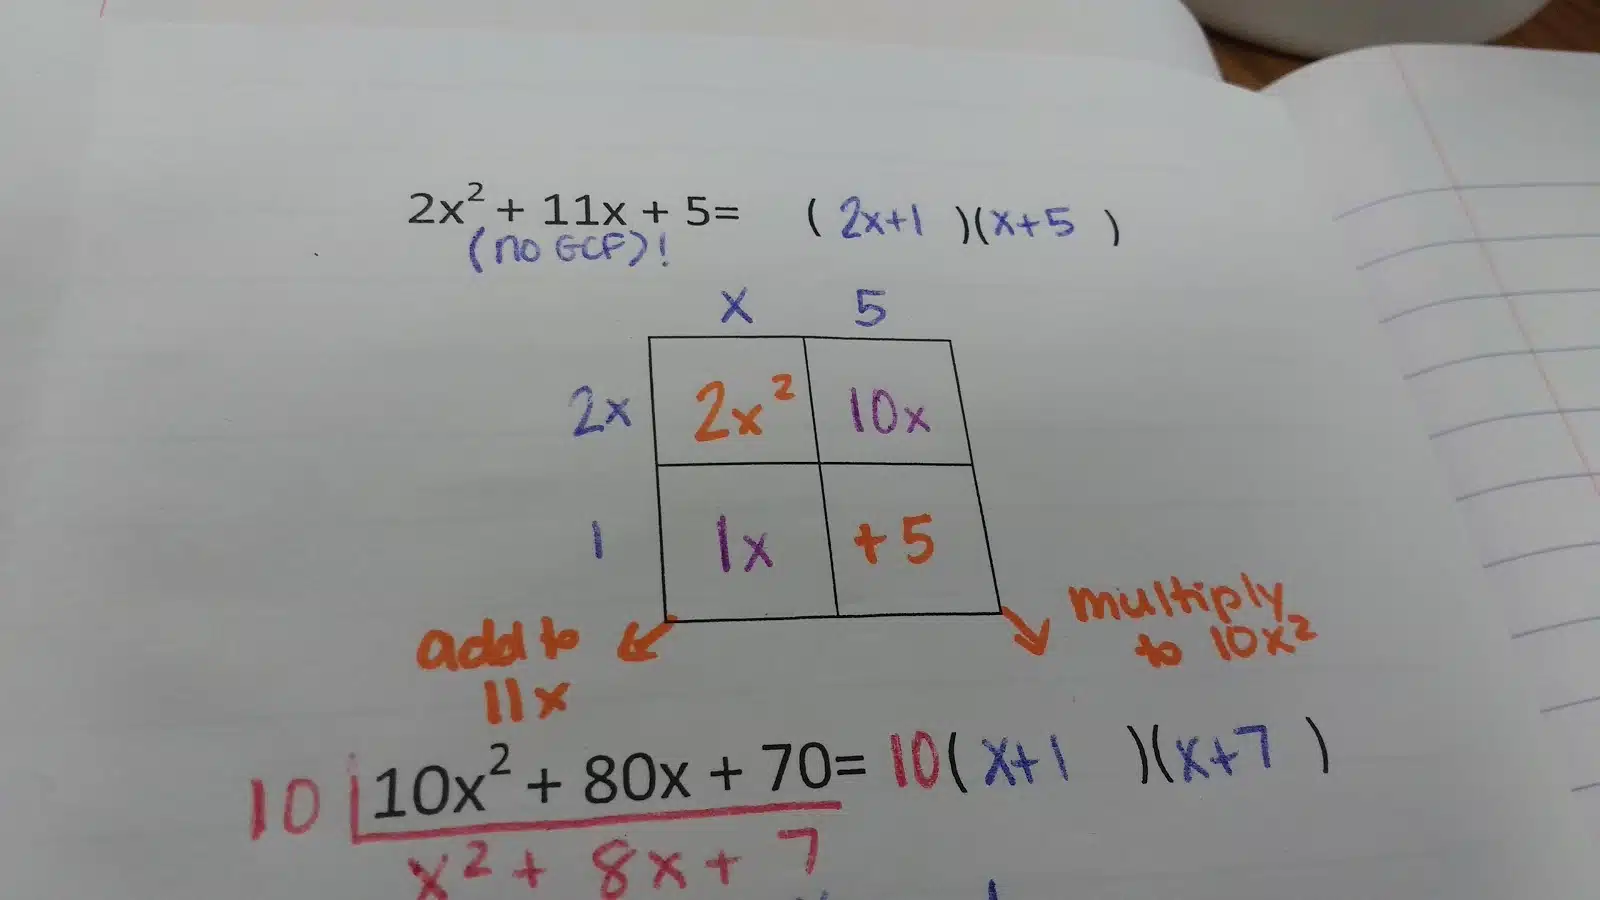 2x² + 11x + 5= (2x+1 )(x+5 )
(no GCF)!
x 5
2x 2x² 10x
1 1x +5
add to 11x
multiply to 10x²
10 10x² + 80x + 70= 10(x+1 )(x+7 )
x² + 8x + 7